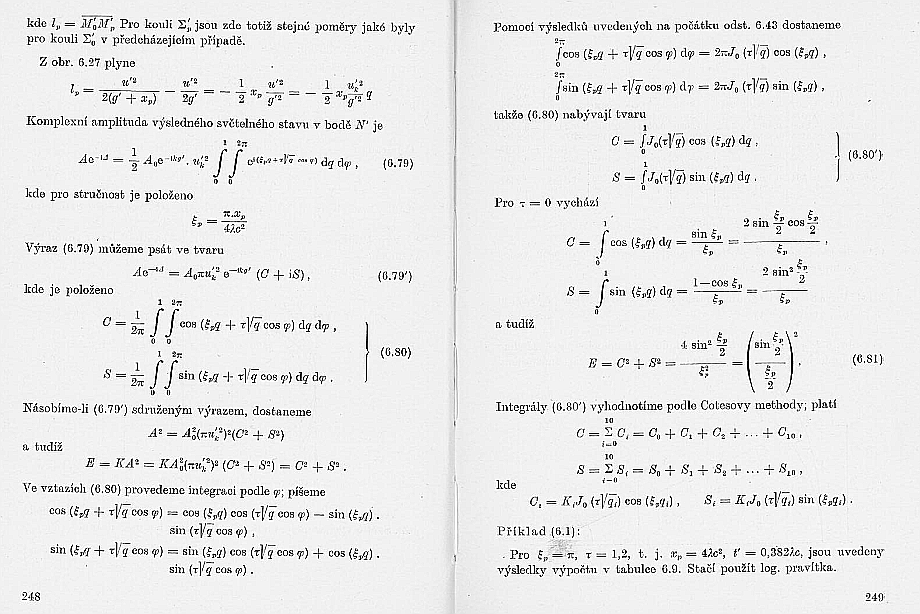 kde l_p = M'_0M'_p. Pro kouli Σ'_p jsou zde totiž stejné poměry jaké byly
pro kouli Σ'_0 v předcházejícím případě.
Z obr. 6.27 plyne
l_p = u'²/(2(g' + x_p)) − u'²/(2g') = − (1/2) x_p u'²/g'² = − (1/2) x_p (u'_k²/g'²) q
Komplexní amplituda výsledného světelného stavu v bodě N' je
Ae^{−iΔ} = (1/2) A_0e^{−ikg'} . u'_k² ∫_0^1 ∫_0^{2π} e^{i(ξ_pq + τ√q cos φ)} dq dφ , (6.79)
kde pro stručnost je položeno
ξ_p = π.x_p/(4λc²)
Výraz (6.79) můžeme psát ve tvaru
Ae^{−iΔ} = A_0πu'_k² e^{−ikg'} (C + iS) , (6.79')
kde je položeno
C = (1/2π) ∫_0^1 ∫_0^{2π} cos (ξ_pq + τ√q cos φ) dq dφ ,
(6.80)
S = (1/2π) ∫_0^1 ∫_0^{2π} sin (ξ_pq + τ√q cos φ) dq dφ .
Násobíme-li (6.79') sdruženým výrazem, dostaneme
A² = A_0²(πu'_k²)²(C² + S²)
a tudíž
E = KA² = KA_0²(πu'_k²)² (C² + S²) = C² + S² .
Ve vztazích (6.80) provedeme integraci podle φ; píšeme
cos (ξ_pq + τ√q cos φ) = cos (ξ_pq) cos (τ√q cos φ) − sin (ξ_pq) .
sin (τ√q cos φ) ,
sin (ξ_pq + τ√q cos φ) = sin (ξ_pq) cos (τ√q cos φ) + cos (ξ_pq) .
sin (τ√q cos φ) .
248
Pomocí výsledků uvedených na počátku odst. 6.43 dostaneme
∫_0^{2π} cos (ξ_pq + τ√q cos φ) dφ = 2πJ_0 (τ√q) cos (ξ_pq) ,
∫_0^{2π} sin (ξ_pq + τ√q cos φ) dφ = 2πJ_0 (τ√q) sin (ξ_pq) ,
takže (6.80) nabývají tvaru
C = ∫_0^1 J_0(τ√q) cos (ξ_pq) dq ,
(6.80')
S = ∫_0^1 J_0(τ√q) sin (ξ_pq) dq .
Pro τ = 0 vychází
C = ∫_0^1 cos (ξ_pq) dq = sin ξ_p/ξ_p = 2 sin (ξ_p/2) cos (ξ_p/2)/ξ_p ,
S = ∫_0^1 sin (ξ_pq) dq = (1—cos ξ_p)/ξ_p = 2 sin² (ξ_p/2)/ξ_p
a tudíž
E = C² + S² = 4 sin² (ξ_p/2)/ξ_p² = (sin (ξ_p/2)/(ξ_p/2))² . (6.81)
Integrály (6.80') vyhodnotíme podle Cotesovy methody; platí
C = Σ_{i=0}^{10} C_i = C_0 + C_1 + C_2 + ... + C_10 ,
S = Σ_{i=0}^{10} S_i = S_0 + S_1 + S_2 + ... + S_10 ,
kde
C_i = K_iJ_0 (τ√q_i) cos (ξ_pq_i) , S_i = K_iJ_0 (τ√q_i) sin (ξ_pq_i) .
Příklad (6.1):
Pro ξ_p = π, τ = 1,2, t. j. x_p = 4λc², t' = 0,382λc, jsou uvedeny
výsledky výpočtu v tabulce 6.9. Stačí použít log. pravítka.
249